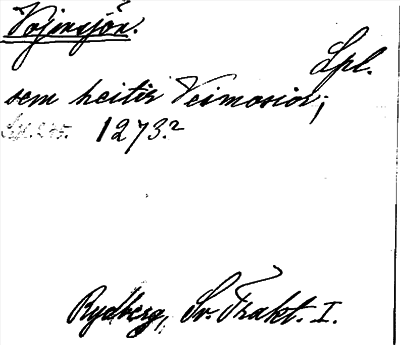 Vojmsjön.
Lpl.
sem heitir Veimosior;
1273.2
Rydberg, Sv. Trakt. I.